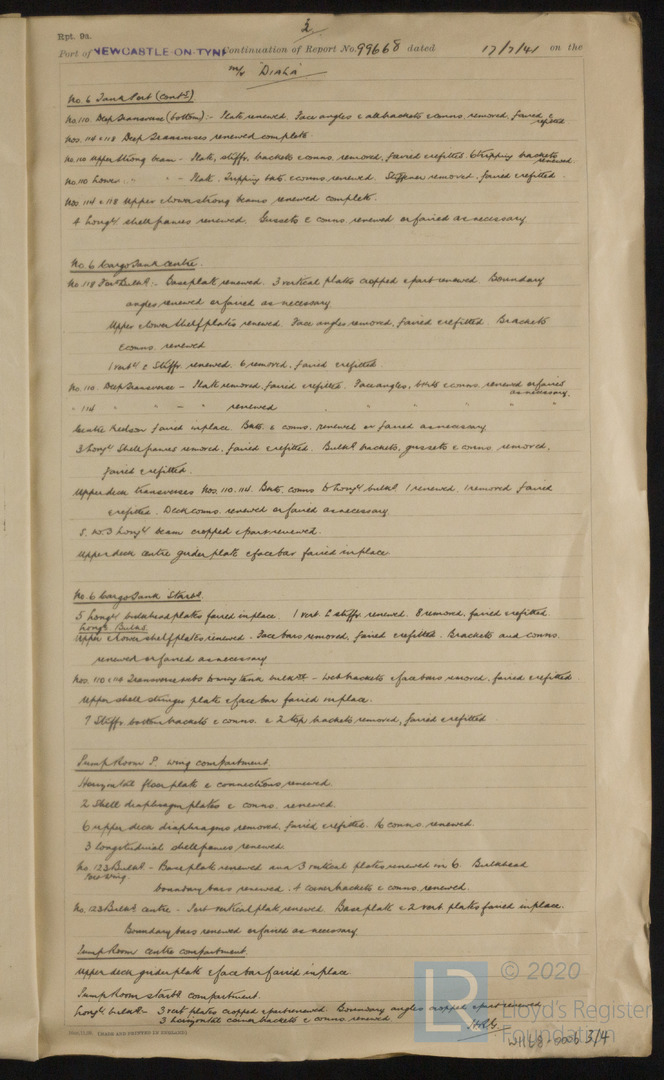 2
Rpt. 9a.
Port of NEWCASTLE-ON-TYNE Continuation of Report No. 99668 dated 17/7/41 on the
m/v "DIALA"
No. 6 Tank Port (contd)
No. 110 Deep Transverse (bottom):- Plate renewed. Face angles & all brackets & conns. removed, faired & refitted
Nos. 114 & 118 Deep Transverses renewed complete.
No. 110 Upper Strong beam - Plate, stiffr, brackets & conns. removed, faired & refitted 6 tripping brackets renewed
No. 110 Lower " " - Plate. Tripping bkts. & conns. renewed. Stiffener removed, faired & refitted.
Nos. 114 & 118 Upper & lower strong beams renewed complete.
4 Longl shell frames renewed. Gussets & conns. renewed or faired as necessary.
No. 6 Cargo Tank Centre.
No. 118 Bulkd:- Base plate renewed. 3 vertical plates cropped & part renewed. Boundary
angles renewed or faired as necessary
Upper & lower shelf plates renewed. Face angles removed, faired & refitted. Brackets
& conns. renewed
1 vertl Stiffr. renewed. 6 removed, faired & refitted.
No. 110. Deep Transverse - Plate removed, faired & refitted. Face angles, bkts & conns. renewed or faired as necessary.
" 114 " " - " renewed " " " " "
Centre Keelson faired in place. Bkts. & conns. renewed or faired as necessary
3 Longl Shell frames removed, faired & refitted. Bulkd brackets, gussets & conns. removed,
faired & refitted.
Upper deck transverses Nos. 110. 114. Bkts. conns to longl bulkd 1 renewed, 1 removed faired
& refitted. Deck conns. renewed or faired as necessary
S. No 3 longl beam cropped & part renewed.
Upper deck centre girder plate & face bar faired in place
No. 6 Cargo Tank Starbd.
5 Longl bulkhead plates faired in place. 1 vert. stiffr. renewed. 8 removed, faired & refitted.
Longl Bulkd.
Upper & lower shelf plates renewed. Face bars removed, faired & refitted. Brackets and conns.
renewed or faired as necessary
Nos. 110 & 114 Transverse webs to wing tank bulkd - Web brackets & face bars removed, faired & refitted
Upper shell stringer plate & face bar faired in place.
7 Stiffr. bottom brackets & conns. & 2 top brackets removed, faired & refitted
Pump Room P. wing compartment.
Horizontal floor plate & connections renewed.
2 Shell diaphragm plates & conns. renewed.
6 upper deck diaphragms removed, faired & refitted. 16 conns. renewed.
3 longitudinal shell frames renewed.
No. 123 Bulkd - Base plate renewed and 3 vertical plates renewed in 6. Bulkhead
Port Wing.
boundary bars renewed. 4 corner brackets & conns. renewed.
No. 123 Bulkd centre - Port vertical plate renewed. Base plate & 2 vert. plates faired in place.
Boundary bars renewed or faired as necessary
Pump Room centre compartment.
Upper deck girder plate & face bar faired in place.
Pump Room starbd compartment.
Longl bulkd - 3 vert plates cropped & part renewed. Boundary angles cropped & part renewed.
3 horizontal corner brackets & conns. renewed
(MADE AND PRINTED IN ENGLAND)
LR
© 2020
Lloyd's Register
Foundation
W1168-0006 3/4